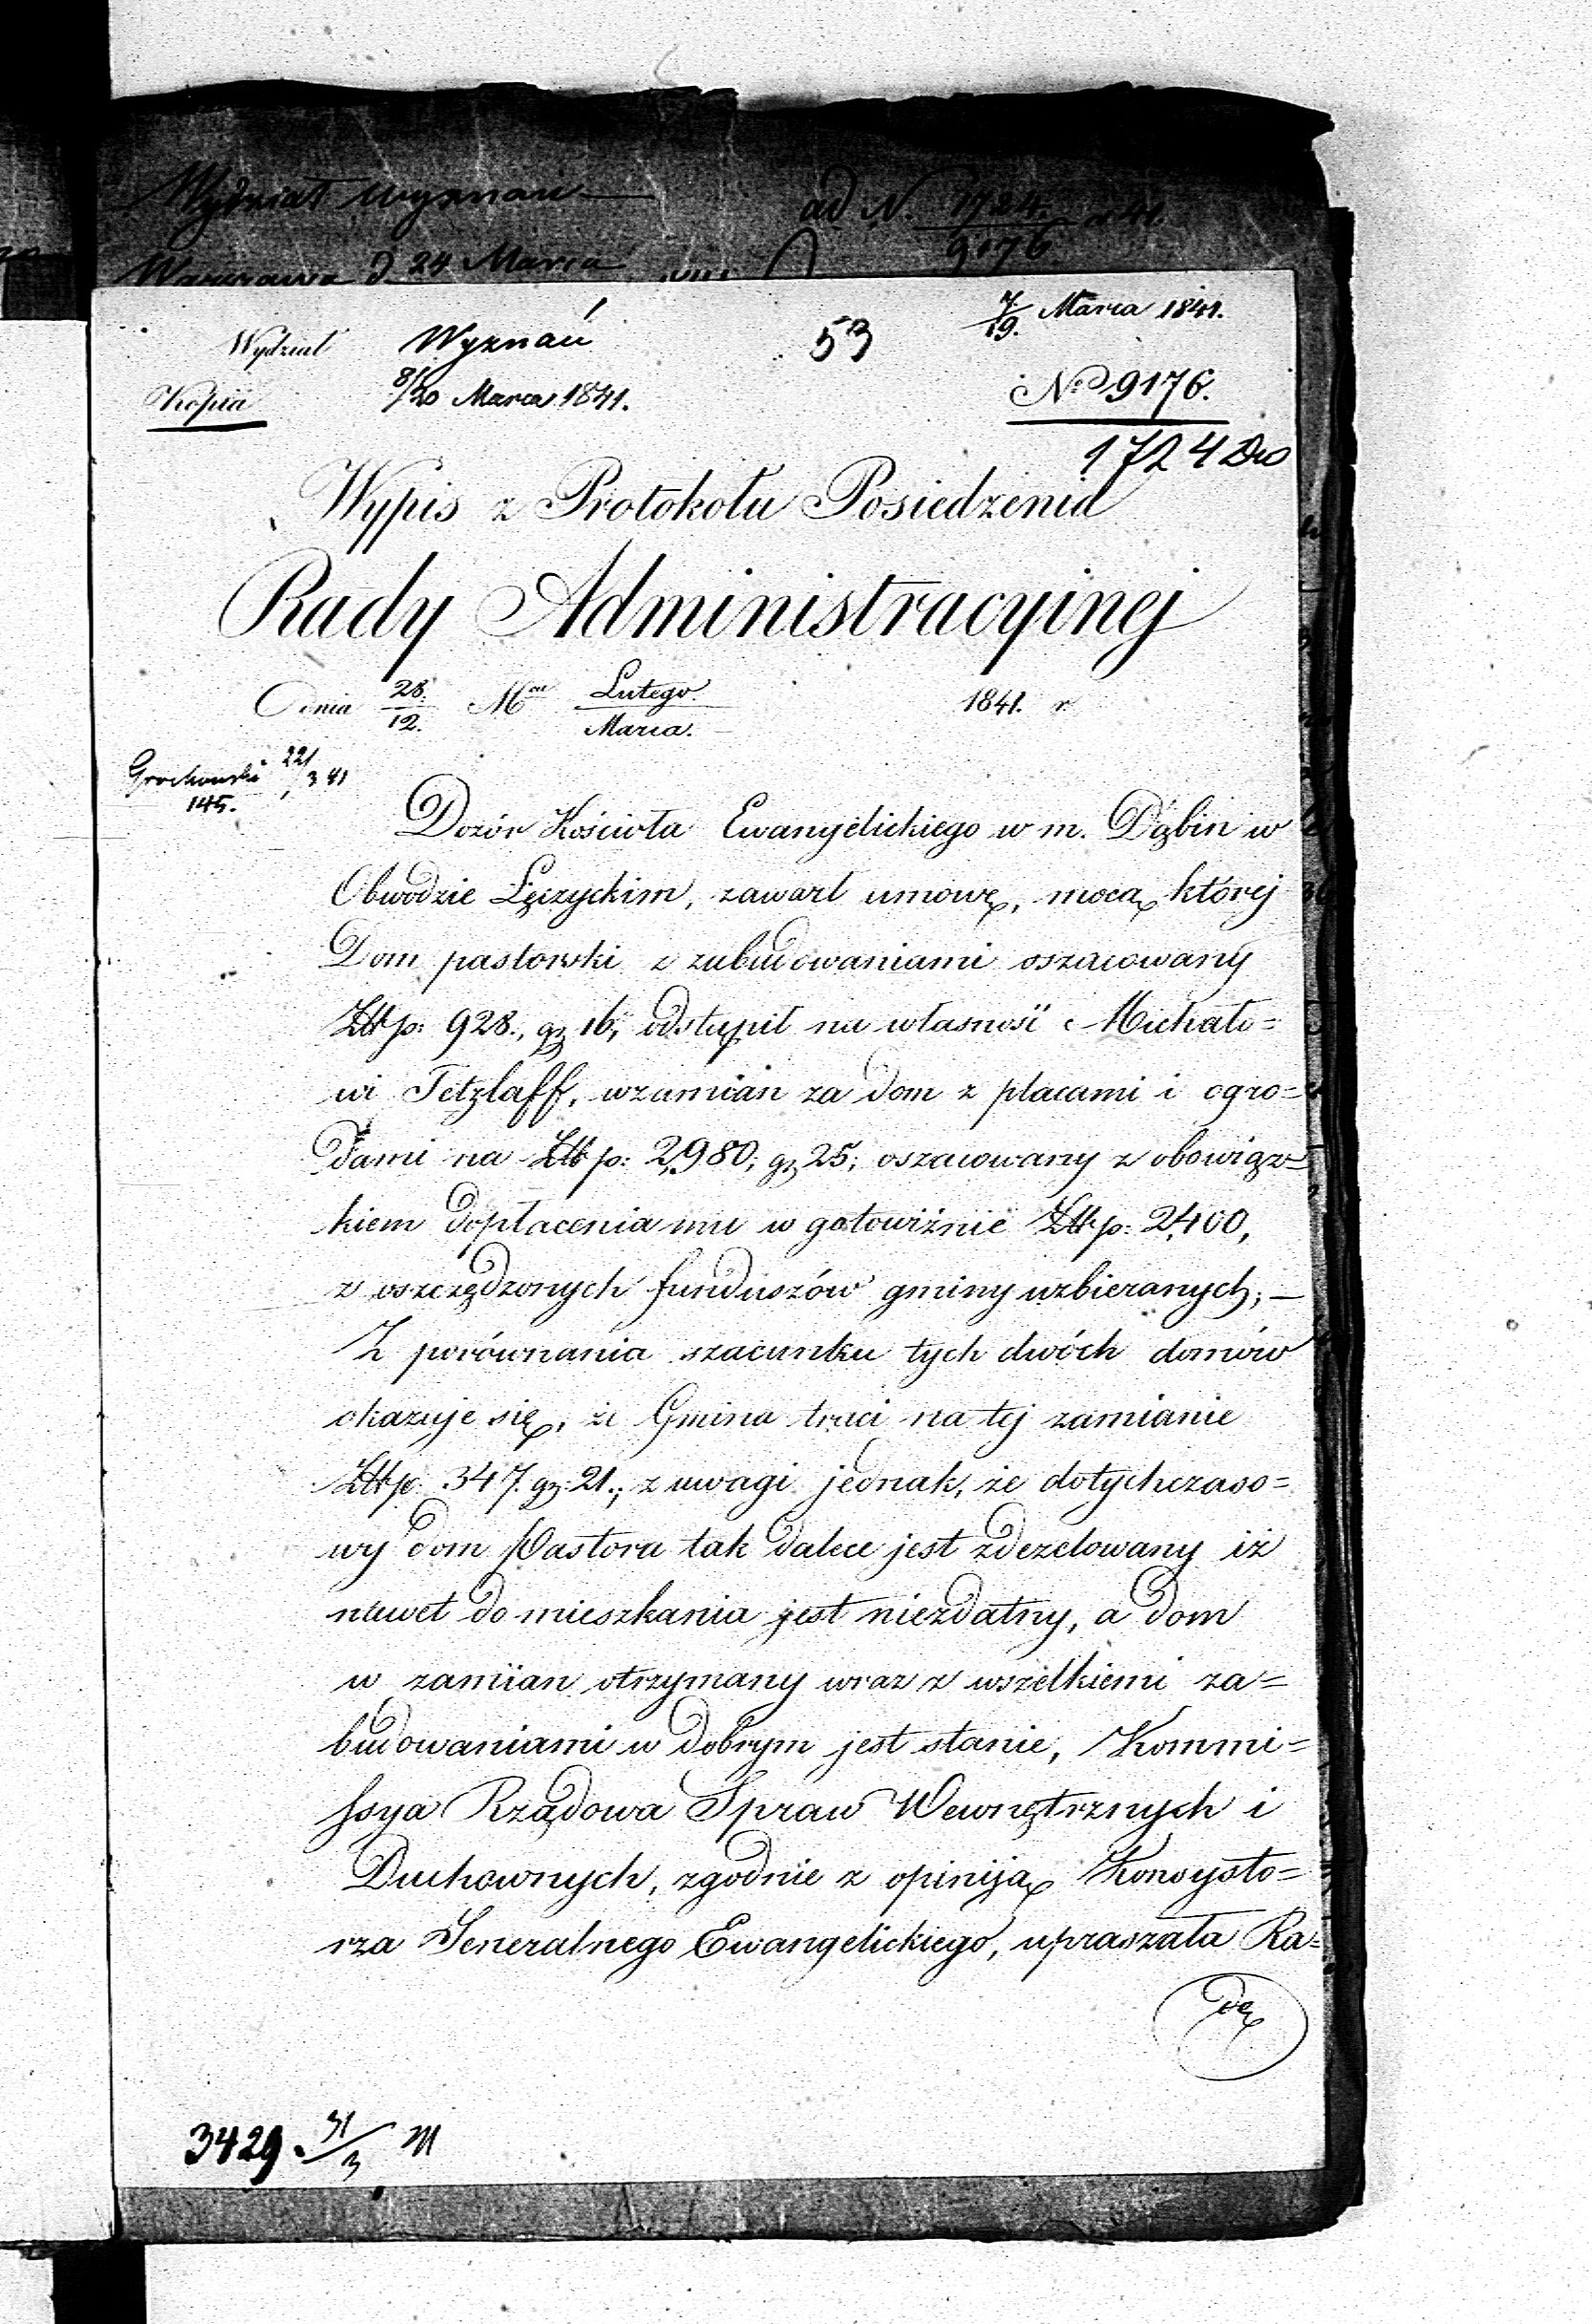 Wydział wyznań ad N. 1724/9176 41
Warszawa d. 24 Marca
Wydział Wyznań 53 7/19. Marca 1841.
Kopia 8/20 Marca 1841. No 9176.
1724
Wypis z Protokołu Posiedzenia
Rady Administracyinej
Dnia 28./12. Mca Lutego/Marca. 1841. r.
Grochowski 221/3 41
145.
Dozór Kościoła Ewangelickiego w m. Dąbin w
Obwodzie Łęczyckim, zawarł umowę, mocą której
Dom pastorski z zabudowaniami oszacowany
Złtp: 928., gr 16, odstąpił na własność Michało=
wi Tetzlaff, wzamian za dom z placami i ogro=
dami na Złtp: 2,980, gr 25, oszacowany z obowiąz=
kiem dopłacenia mu w gotowiźnie Złtp: 2,400,
z oszczędzonych funduszów gminy uzbieranych; —
Z porównania szacunku tych dwóch domów
okazuje się, że Gmina traci na tej zamianie
Złtp: 347. gr: 21.; z uwagi jednak, że dotychczaso=
wy dom Pastora tak dalece jest zdezelowany iż
nawet do mieszkania jest niezdatny, a dom
w zamian otrzymany wraz z wszelkiemi za=
budowaniami w dobrym jest stanie, Kommi=
ssya Rządowa Spraw Wewnętrznych i
Duchownych, zgodnie z opiniją Konsysto=
rza Jeneralnego Ewangelickiego, upraszała Ra=
dę
3429. 31/3 M